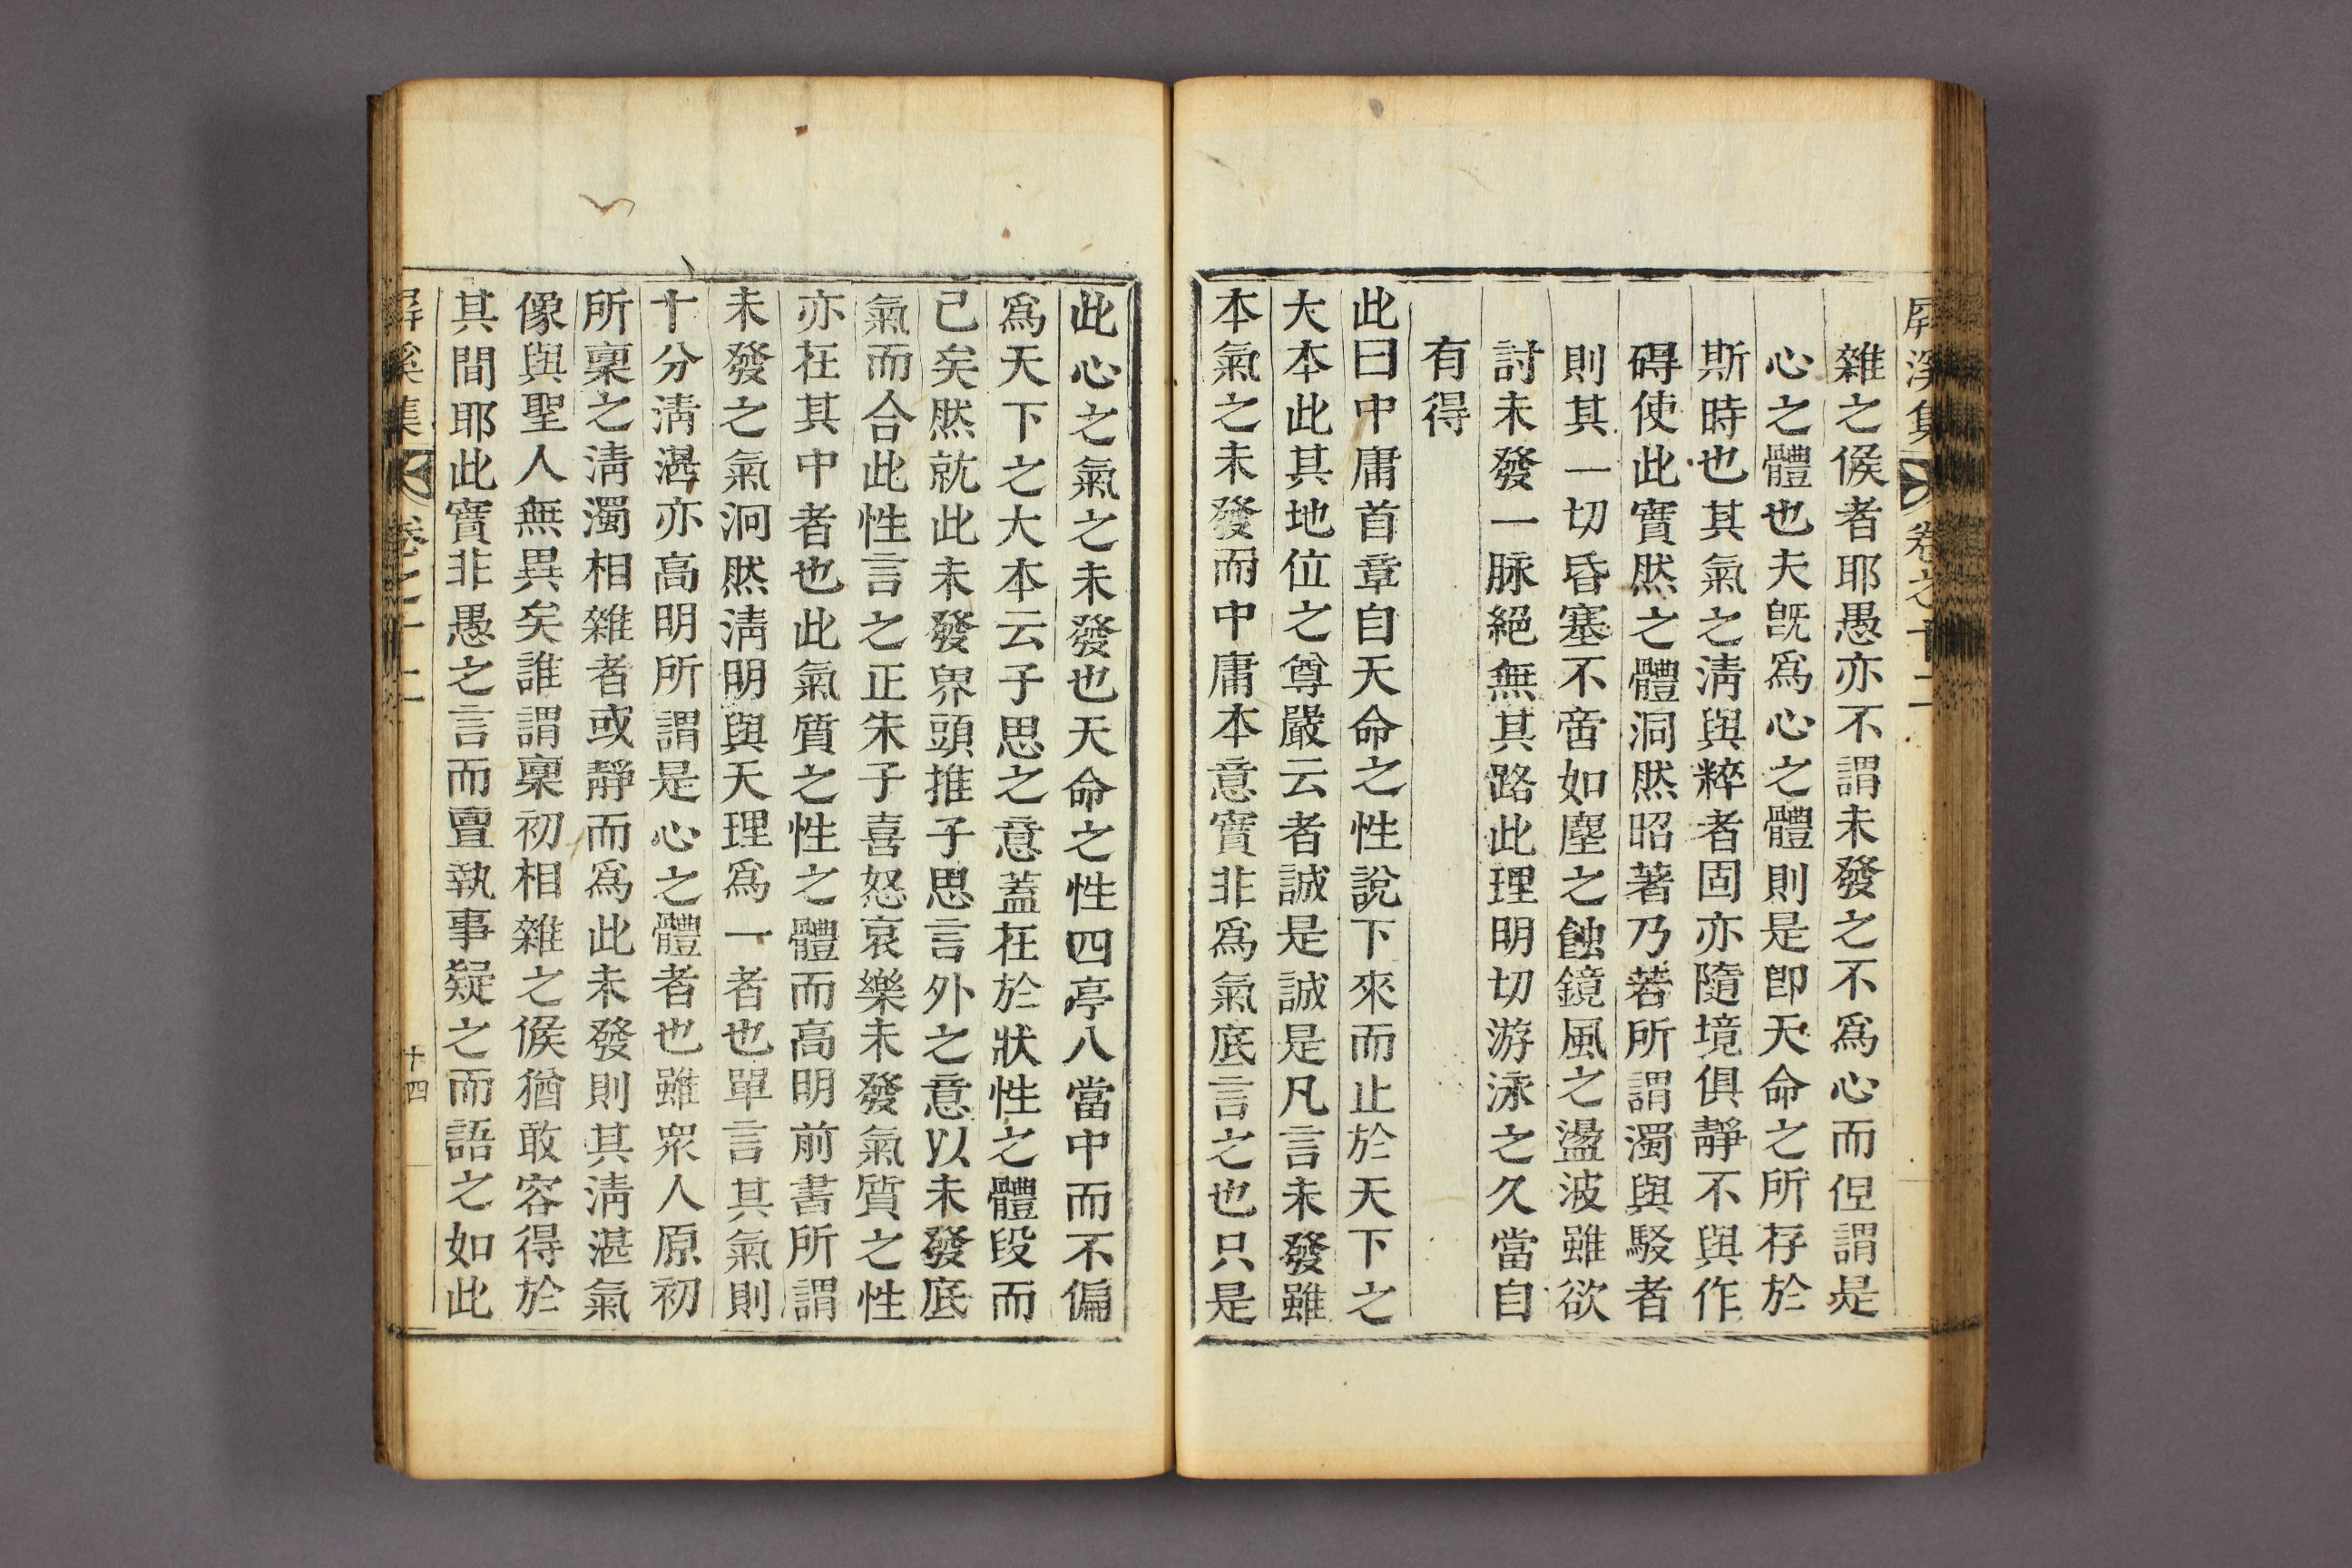 屛溪集 卷之十二
雜之候者耶愚亦不謂未發之不爲心而但謂是
心之體也夫旣爲心之體則是卽天命之所存於
斯時也其氣之淸與粹者固亦隨境俱靜不與作
碍使此實然之體洞然昭著乃若所謂濁與駁者
則其一切昏塞不啻如塵之蝕鏡風之盪波雖欲
討未發一脉絕無其路此理明切游泳之久當自
有得
此曰中庸首章自天命之性說下來而止於天下之
大本此其地位之尊嚴云者誠是誠是凡言未發雖
本氣之未發而中庸本意實非爲氣底言之也只是
此心之氣之未發也天命之性四亭八當中而不偏
爲天下之大本云子思之意蓋在於狀性之體段而
已矣然就此未發界頭推子思言外之意以未發底
氣而合此性言之正朱子喜怒哀樂未發氣質之性
亦在其中者也此氣質之性之體而高明前書所謂
未發之氣泂然淸明與天理爲一者也單言其氣則
十分淸湛亦高明所謂是心之體者也雖衆人原初
所稟之淸濁相雜者或靜而爲此未發則其淸湛氣
像與聖人無異矣誰謂稟初相雜之候猶敢容得於
其間耶此實非愚之言而亶執事疑之而語之如此
屛溪集 卷之十二 十四